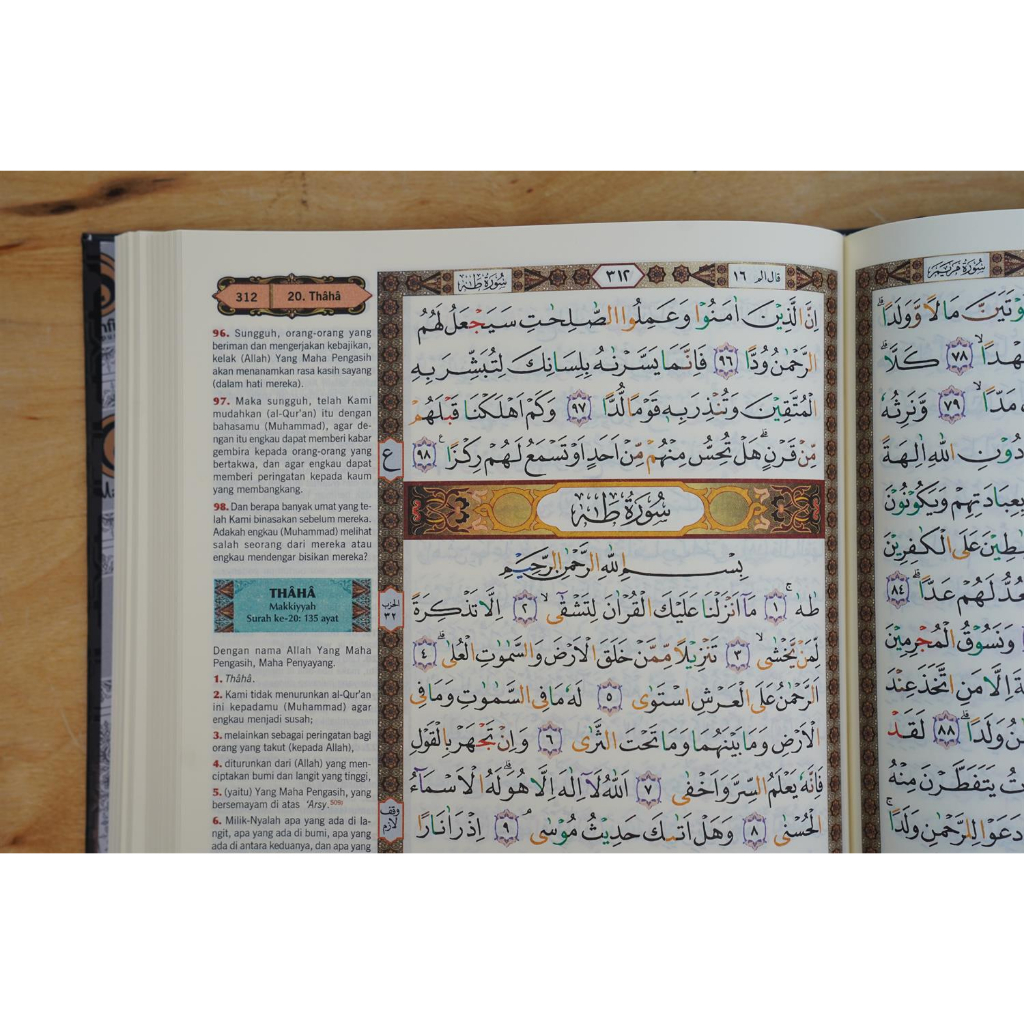 312
20. Thâhâ
96. Sungguh, orang-orang yang
beriman dan mengerjakan kebajikan,
kelak (Allah) Yang Maha Pengasih
akan menanamkan rasa kasih sayang
(dalam hati mereka).
97. Maka sungguh, telah Kami
mudahkan (al-Qur'an) itu dengan
bahasamu (Muhammad), agar de-
ngan itu engkau dapat memberi kabar
gembira kepada orang-orang yang
bertakwa, dan agar engkau dapat
memberi peringatan kepada kaum
yang membangkang.
98. Dan berapa banyak umat yang te-
lah Kami binasakan sebelum mereka.
Adakah engkau (Muhammad) melihat
salah seorang dari mereka atau
engkau mendengar bisikan mereka?
THÂHÂ
Makkiyyah
Surah ke-20: 135 ayat
Dengan nama Allah Yang Maha
Pengasih, Maha Penyayang.
1. Thâhâ.
2. Kami tidak menurunkan al-Qur'an
ini kepadamu (Muhammad) agar
engkau menjadi susah;
3. melainkan sebagai peringatan bagi
orang yang takut (kepada Allah),
4. diturunkan dari (Allah) yang men-
ciptakan bumi dan langit yang tinggi,
5. (yaitu) Yang Maha Pengasih, yang
bersemayam di atas 'Arsy.509)
6. Milik-Nyalah apa yang ada di la-
ngit, apa yang ada di bumi, apa yang
ada di antara keduanya, dan apa yang
قال الم ١٦
٣١٢
سُوْرَةُ طٰهٰ
اِنَّ الَّذِيْنَ اٰمَنُوْا وَعَمِلُوا الصّٰلِحٰتِ سَيَجْعَلُ لَهُمُ
الرَّحْمٰنُ وُدًّا ٩٦ فَاِنَّمَا يَسَّرْنٰهُ بِلِسَانِكَ لِتُبَشِّرَ بِهِ
الْمُتَّقِيْنَ وَتُنْذِرَ بِهٖ قَوْمًا لُّدًّا ٩٧ وَكَمْ اَهْلَكْنَا قَبْلَهُمْ
مِّنْ قَرْنٍۗ هَلْ تُحِسُّ مِنْهُمْ مِّنْ اَحَدٍ اَوْ تَسْمَعُ لَهُمْ رِكْزًا ࣖ ٩٨
ع
سُوْرَةُ طٰهٰ
بِسْمِ اللّٰهِ الرَّحْمٰنِ الرَّحِيْمِ
طٰهٰ ۚ ١ مَآ اَنْزَلْنَا عَلَيْكَ الْقُرْاٰنَ لِتَشْقٰٓى ۙ ٢ اِلَّا تَذْكِرَةً
الحزب
٣٢
لِّمَنْ يَّخْشٰى ۙ ٣ تَنْزِيْلًا مِّمَّنْ خَلَقَ الْاَرْضَ وَالسَّمٰوٰتِ الْعُلٰى ۗ ٤
الرَّحْمٰنُ عَلَى الْعَرْشِ اسْتَوٰى ٥ لَهٗ مَا فِى السَّمٰوٰتِ وَمَا فِى
الْاَرْضِ وَمَا بَيْنَهُمَا وَمَا تَحْتَ الثَّرٰى ٦ وَاِنْ تَجْهَرْ بِالْقَوْلِ
فَاِنَّهٗ يَعْلَمُ السِّرَّ وَاَخْفٰى ٧ اَللّٰهُ لَآ اِلٰهَ اِلَّا هُوَۗ لَهُ الْاَسْمَاۤءُ
وقف
لازم
الْحُسْنٰى ٨ وَهَلْ اَتٰىكَ حَدِيْثُ مُوْسٰىۘ ٩ اِذْ رَاٰ نَارًا
سُوْرَةُ مَرْيَمَ
مَالًا وَّوَلَدًا ۗ
٧٨ كَلَّاۗ
مَدًّا ۙ ٧٩ وَّنَرِثُهٗ
دُوْنِ اللّٰهِ اٰلِهَةً
بِعِبَادَتِهِمْ وَيَكُوْنُوْنَ
عَلَى الْكٰفِرِيْنَ
لَهُمْ عَدًّا ۗ ٨٤
وَنَسُوْقُ الْمُجْرِمِيْنَ
اِلَّا مَنِ اتَّخَذَ عِنْدَ
وَلَدًا ۗ ٨٨ لَقَدْ
يَتَفَطَّرْنَ مِنْهُ
دَعَوْا لِلرَّحْمٰنِ وَلَدًا ۚ